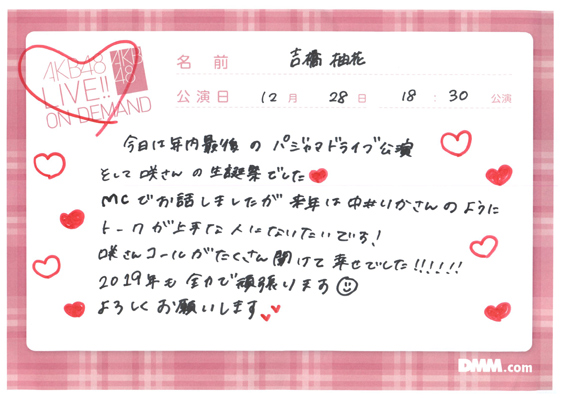 AKB48
LIVE!!
ON DEMAND
AKB
48
名前 吉橋 柚花
公演日 12月 28日 18:30 公演
今日は年内最後の パジャマドライブ公演
そして 咲さんの 生誕祭でした
MCでお話しましたが 来年は 中井りかさんのように
トークが上手な人になりたいです!
咲さんコールがたくさん聞けて 幸せでした!!!!!!
2019年も 全力で頑張ります
よろしくお願いします
DMM.com